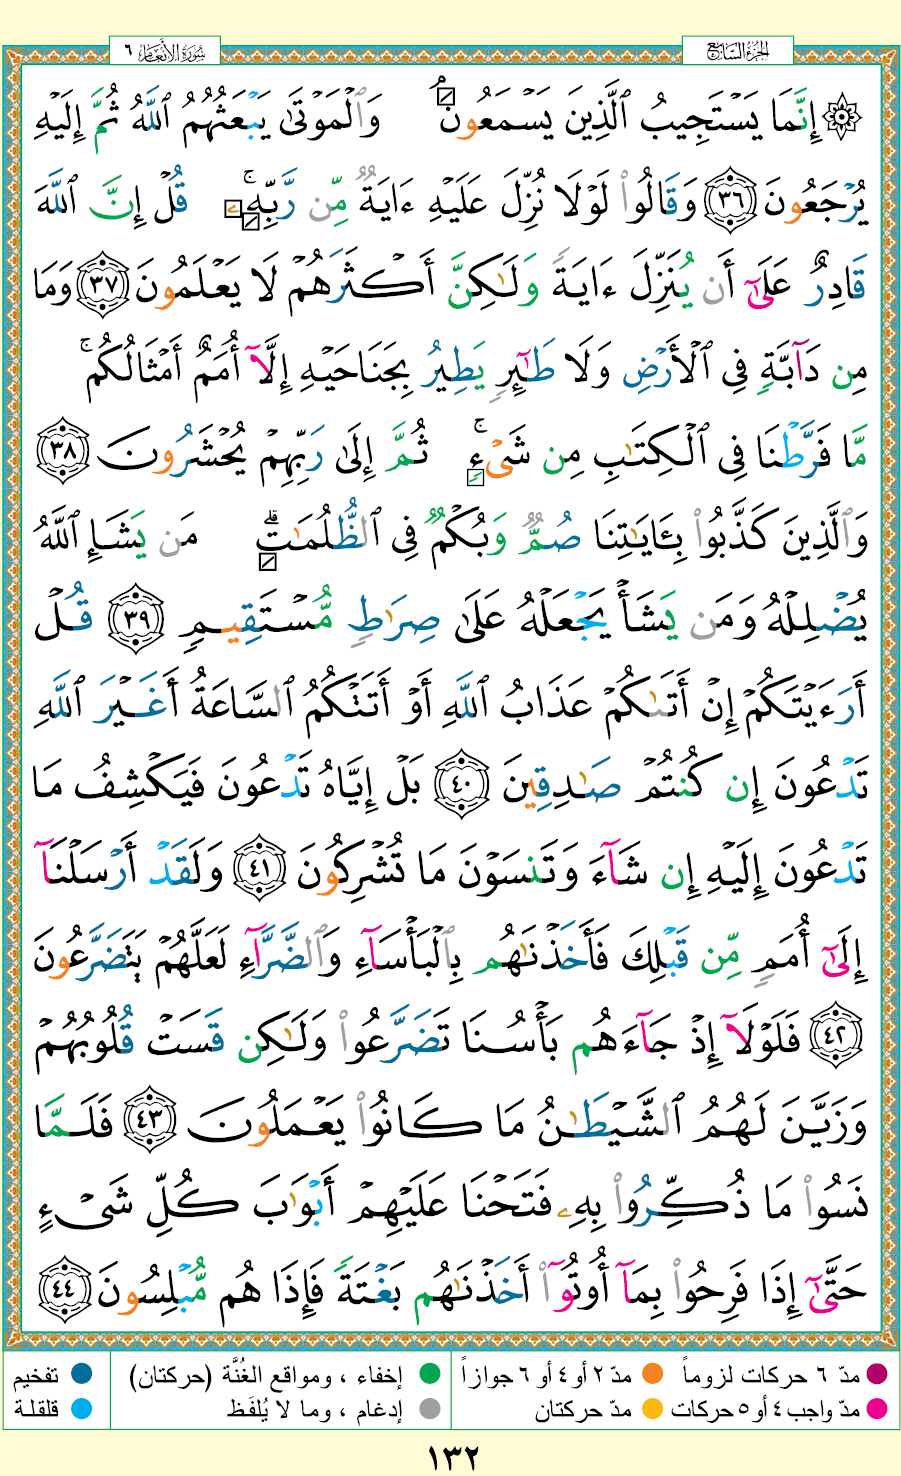 سُورَةُ الأَنْعَامِ ٦
الجُزْءُ السَّابِعُ
۞ إِنَّمَا يَسْتَجِيبُ ٱلَّذِينَ يَسْمَعُونَ ۘ وَٱلْمَوْتَىٰ يَبْعَثُهُمُ ٱللَّهُ ثُمَّ إِلَيْهِ
يُرْجَعُونَ ﴿٣٦﴾ وَقَالُوا۟ لَوْلَا نُزِّلَ عَلَيْهِ ءَايَةٌ مِّن رَّبِّهِۦ ۚ قُلْ إِنَّ ٱللَّهَ
قَادِرٌ عَلَىٰٓ أَن يُنَزِّلَ ءَايَةً وَلَـٰكِنَّ أَكْثَرَهُمْ لَا يَعْلَمُونَ ﴿٣٧﴾ وَمَا
مِن دَآبَّةٍ فِى ٱلْأَرْضِ وَلَا طَـٰٓئِرٍ يَطِيرُ بِجَنَاحَيْهِ إِلَّآ أُمَمٌ أَمْثَالُكُم ۚ
مَّا فَرَّطْنَا فِى ٱلْكِتَـٰبِ مِن شَىْءٍ ۚ ثُمَّ إِلَىٰ رَبِّهِمْ يُحْشَرُونَ ﴿٣٨﴾
وَٱلَّذِينَ كَذَّبُوا۟ بِـَٔايَـٰتِنَا صُمٌّ وَبُكْمٌ فِى ٱلظُّلُمَـٰتِ ۗ مَن يَشَإِ ٱللَّهُ
يُضْلِلْهُ وَمَن يَشَأْ يَجْعَلْهُ عَلَىٰ صِرَٰطٍ مُّسْتَقِيمٍ ﴿٣٩﴾ قُلْ
أَرَءَيْتَكُمْ إِنْ أَتَىٰكُمْ عَذَابُ ٱللَّهِ أَوْ أَتَتْكُمُ ٱلسَّاعَةُ أَغَيْرَ ٱللَّهِ
تَدْعُونَ إِن كُنتُمْ صَـٰدِقِينَ ﴿٤٠﴾ بَلْ إِيَّاهُ تَدْعُونَ فَيَكْشِفُ مَا
تَدْعُونَ إِلَيْهِ إِن شَآءَ وَتَنسَوْنَ مَا تُشْرِكُونَ ﴿٤١﴾ وَلَقَدْ أَرْسَلْنَآ
إِلَىٰٓ أُمَمٍ مِّن قَبْلِكَ فَأَخَذْنَـٰهُم بِٱلْبَأْسَآءِ وَٱلضَّرَّآءِ لَعَلَّهُمْ يَتَضَرَّعُونَ
﴿٤٢﴾ فَلَوْلَآ إِذْ جَآءَهُم بَأْسُنَا تَضَرَّعُوا۟ وَلَـٰكِن قَسَتْ قُلُوبُهُمْ
وَزَيَّنَ لَهُمُ ٱلشَّيْطَـٰنُ مَا كَانُوا۟ يَعْمَلُونَ ﴿٤٣﴾ فَلَمَّا
نَسُوا۟ مَا ذُكِّرُوا۟ بِهِۦ فَتَحْنَا عَلَيْهِمْ أَبْوَٰبَ كُلِّ شَىْءٍ
حَتَّىٰٓ إِذَا فَرِحُوا۟ بِمَآ أُوتُوٓا۟ أَخَذْنَـٰهُم بَغْتَةً فَإِذَا هُم مُّبْلِسُونَ ﴿٤٤﴾
مدّ ٦ حركات لزوماً مدّ ٢ أو ٤ أو ٦ جوازاً إخفاء ، ومواقع الغُنَّة (حركتان) تفخيم
مدّ واجب ٤ أو ٥ حركات مدّ حركتان إدغام ، وما لا يُلفَظ قلقلة
١٣٢